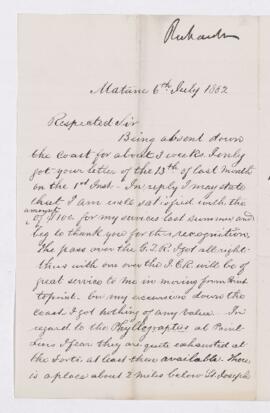 Richardson
Matane 6th July 1882
Respected Sir
Being absent down
the coast for about 3 weeks I only
got your letter of the 13th of last month
on the 1st Inst. In reply I may state
that I am well satisfied with the
amount
of $100 for my services last summer and
beg to thank you for this recognition
The pass over the G.T.R. I got all right
this with one over the I.C.R. will be of
great service to me in moving from point
to point. In my excursion down the
coast I got nothing of any value. In
regard to the Phyllograptus at Point
Levis I fear they are quite exhausted at
the Forts at least those available. There
is a place about 2 miles below St. Joseph